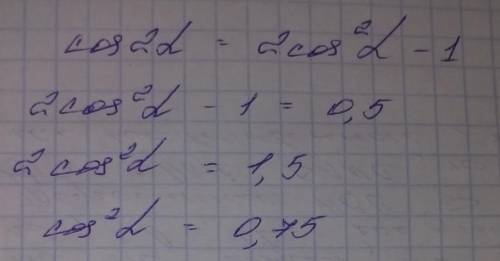 cos2α = 2cos²α - 1
2cos²α - 1 = 0,5
2cos²α = 1,5
cos²α = 0,75